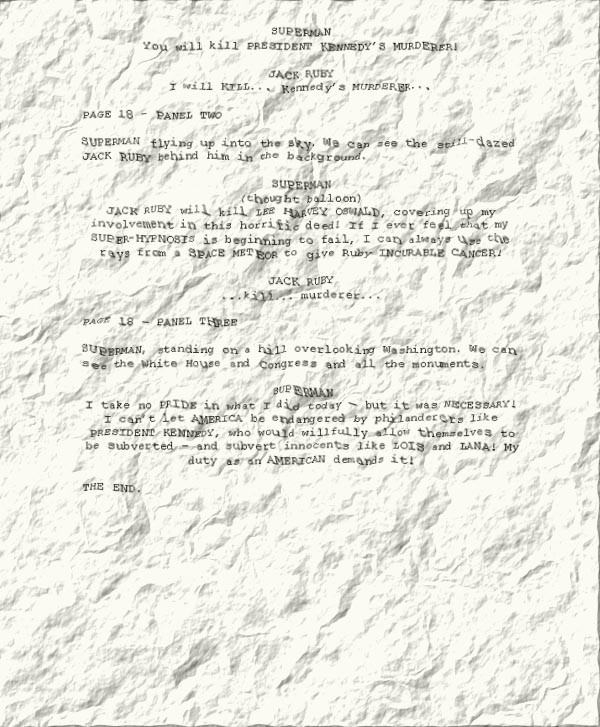 SUPERMAN
You will kill PRESIDENT KENNEDY'S MURDERER!
JACK RUBY
I will KILL... Kennedy's MURDERER...
PAGE 18 - PANEL TWO
SUPERMAN flying up into the sky. We can see the still-dazed
JACK RUBY behind him in the background.
SUPERMAN
(thought balloon)
JACK RUBY will kill LEE HARVEY OSWALD, covering up my
involvement in this horrific deed! If I ever feel that my
SUPER-HYPNOSIS is beginning to fail, I can always use the
rays from a SPACE METEOR to give Ruby INCURABLE CANCER!
JACK RUBY
...kill... murderer...
PAGE 18 - PANEL THREE
SUPERMAN, standing on a hill overlooking Washington. We can
see the White House and Congress and all the monuments.
SUPERMAN
I take no PRIDE in what I did today - but it was NECESSARY!
I can't let AMERICA be endangered by philanderers like
PRESIDENT KENNEDY, who would willfully allow themselves to
be subverted - and subvert innocents like LOIS and LANA! My
duty as an AMERICAN demands it!
THE END.